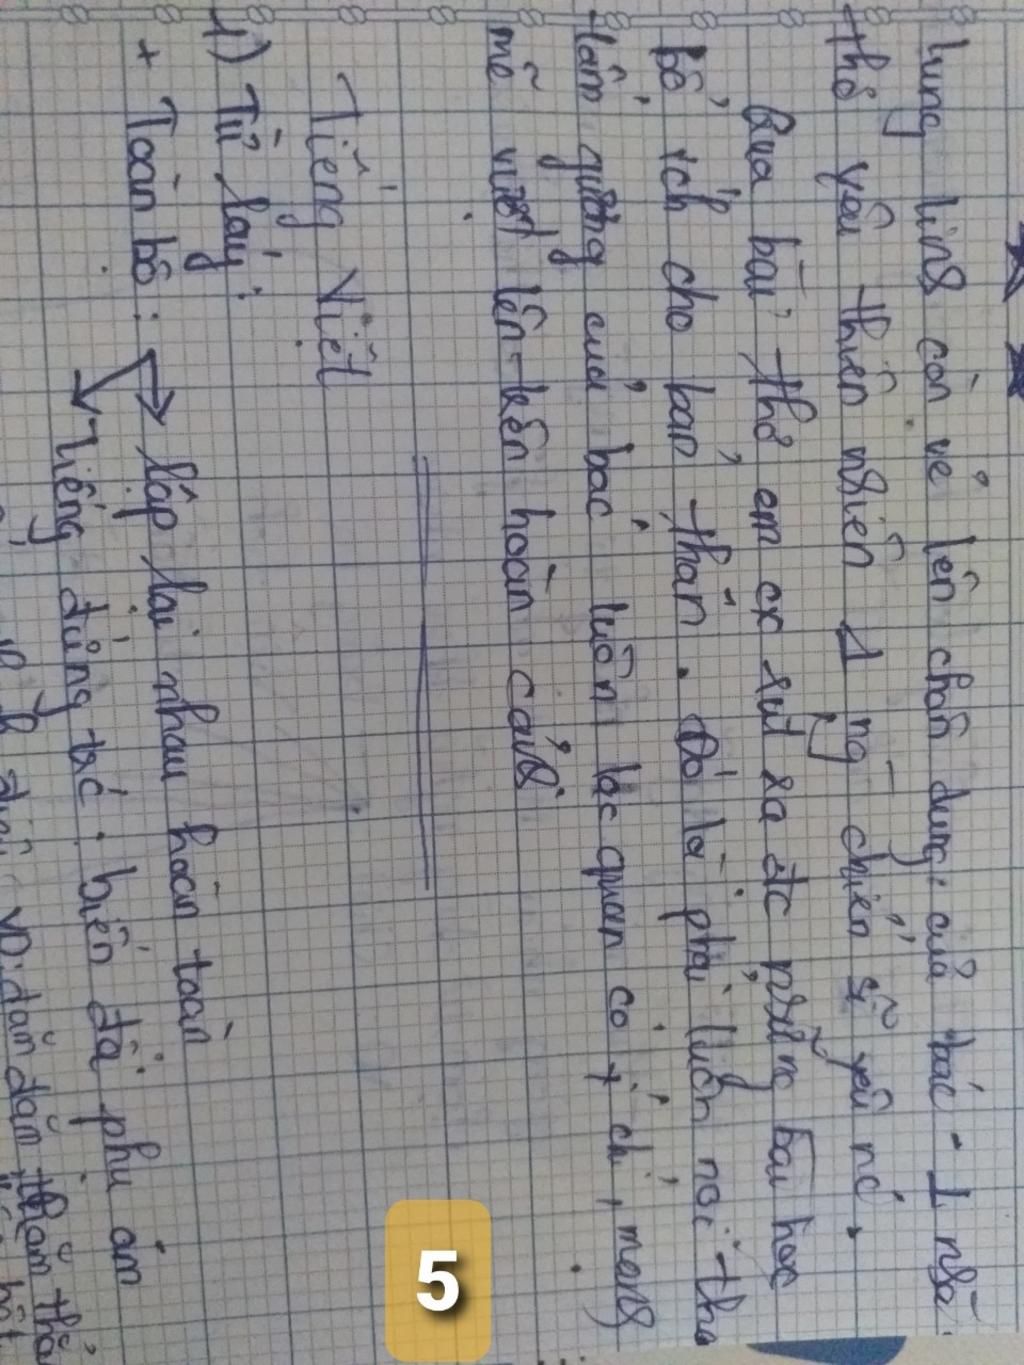 lung linh còn vẽ lên chân dung của bác - 1 nhà
thơ yêu thiên nhiên 1 ng chiến sĩ yêu nc.
Qua bài thơ em cx rút ra đc nhữg bài học
bổ ích cho bản thân. Đó là phải luôn noi theo
tấm gương của bác luôn lạc quan có ý chí, mạnh
mẽ vượt lên trên hoàn cảnh
Tiếng Việt
1) Từ láy:
+ Toàn bộ: → lặp lại nhau hoàn toàn
→ Tiếng đứng trc. biến đổi phụ âm
VD: đăm đăm
5